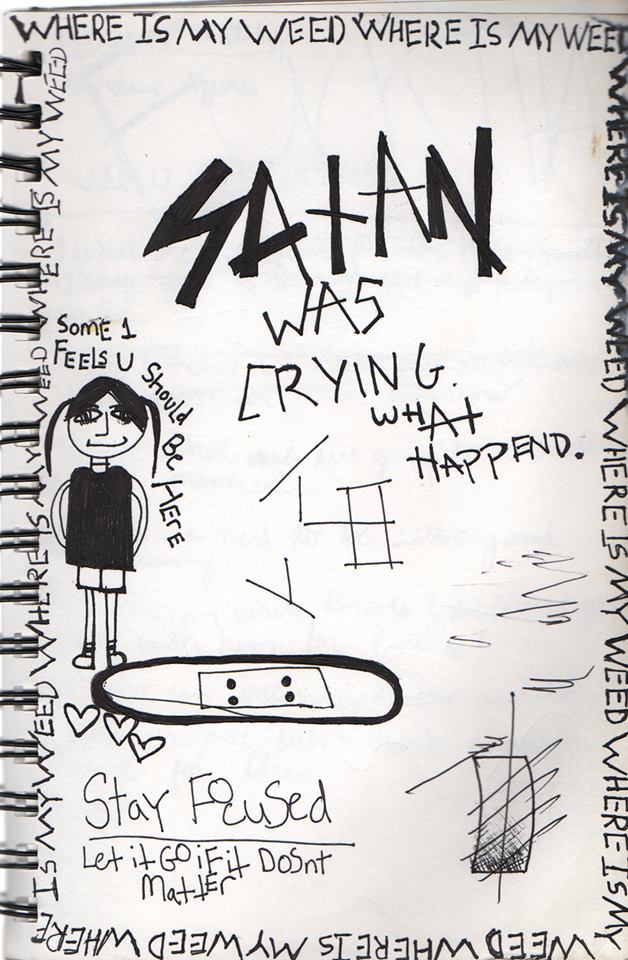 WHERE IS MY WEED WHERE IS MY WEE
WHERE IS MY WEED WHERE IS MY WEED WHERE IS MY
WEED WHERE IS MY WEED WHERE
IS MY WEED WHERE IS MY WEED WHERE IS MY WEED
SATAN
WAS
CRYING.
WHAT
HAPPEND.
SOME 1
FEELS U
Should
BE HERE
Stay FOcuSed
Let it GO iF it DOSnt
MaTTER